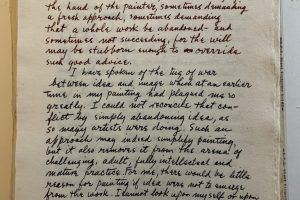 the hand of the painter, sometimes demanding
a fresh approach, sometimes demanding
that a whole work be abandoned - and
sometimes not succeeding, for the will
may be stubborn enough to override
such good advice.
I have spoken of the tug of war
between idea and image which at an earlier
time in my painting had plagued me so
greatly. I could not reconcile that con-
flict by simply abandoning idea, as
so many artists were doing. Such an
approach may indeed simplify painting,
but it also removes it from the arena of
challenging, adult, fully intellectual and
mature practice. For me, there would be little
reason for painting if idea were not to emerge
from the work. I cannot look upon myself or upon